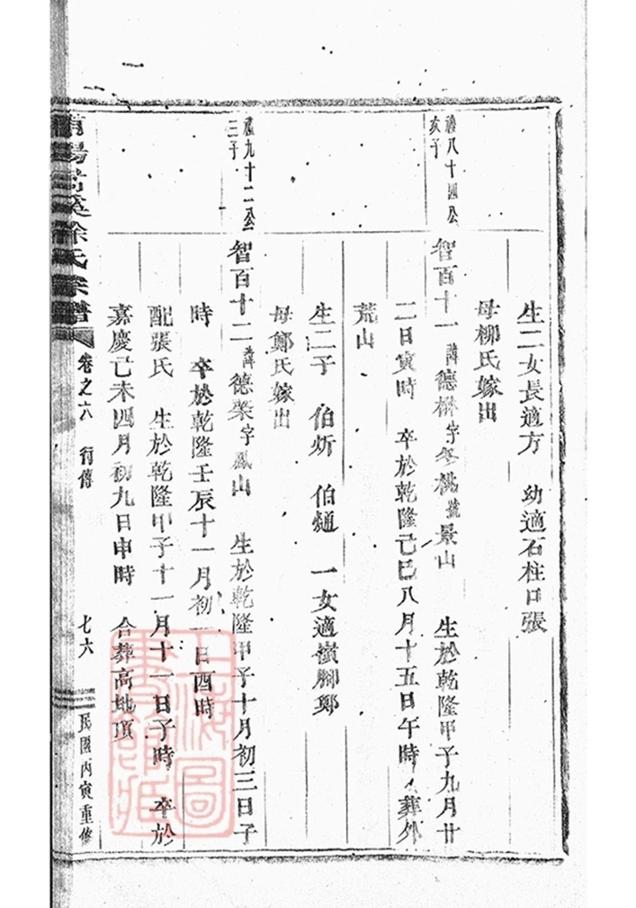 生二女長適方　幼適石柱口張
母柳氏嫁出
禮八十四公
亥子
智百十一諱德字號景山　生於乾隆甲子九月廿
二日寅時　卒於乾隆己巳八月十五日午時　葬外
荒山
生二子　伯炘　伯　一女適嶺腳鄭
母鄭氏嫁出
禮九十二公
三子
智百十二諱德榮字鳳山　生於乾隆甲子十月初三日子
時　卒於乾隆壬辰十一月初一日酉時
配張氏　生於乾隆甲子十一月十一日子時　卒於
嘉慶己未四月初九日申時　合葬高地頂
陽常溪徐氏宗譜　卷之六　行傳　七六　民國丙寅重修
上海圖書館藏